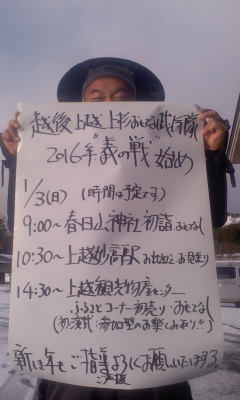 越後上越上杉おもてなし武将隊
2016年"義の戦"始め
1/3(日) (時間は予定です)
9:00〜春日山神社初詣おもてなし
10:30〜上越妙高駅お出迎えお見送り
14:30〜上越観光物産センター
ふるさとコーナー初売りおもてなし
(初演武・参加型のお楽しみあり!!)
新しい年もご指導よろしくお願いいたします
ご声援